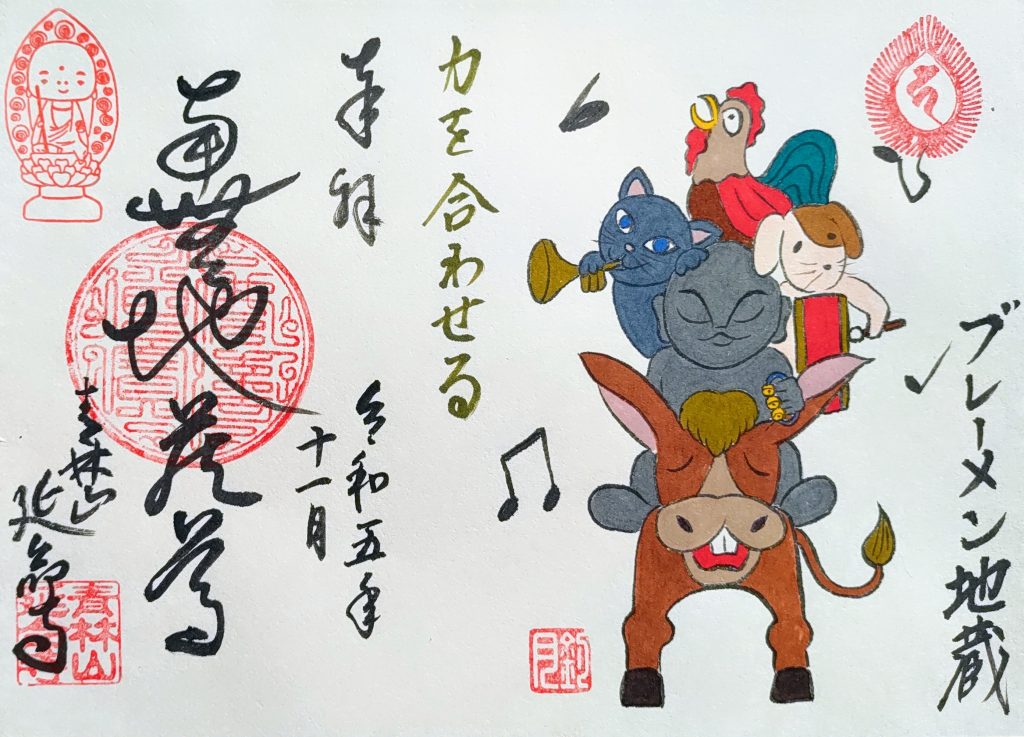 ブレーメン地蔵
力を合わせる
奉拝
令和五年
十一月
南無地蔵尊
青林山
延命寺
青林山